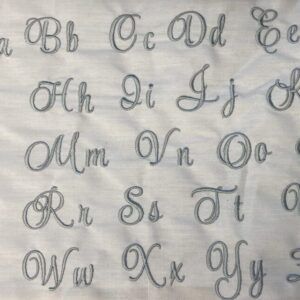 a Bb Cc Dd Ee
Hh Ii Jj
Mm Vn Oo
Rr Ss Tt
Ww Xx Yy